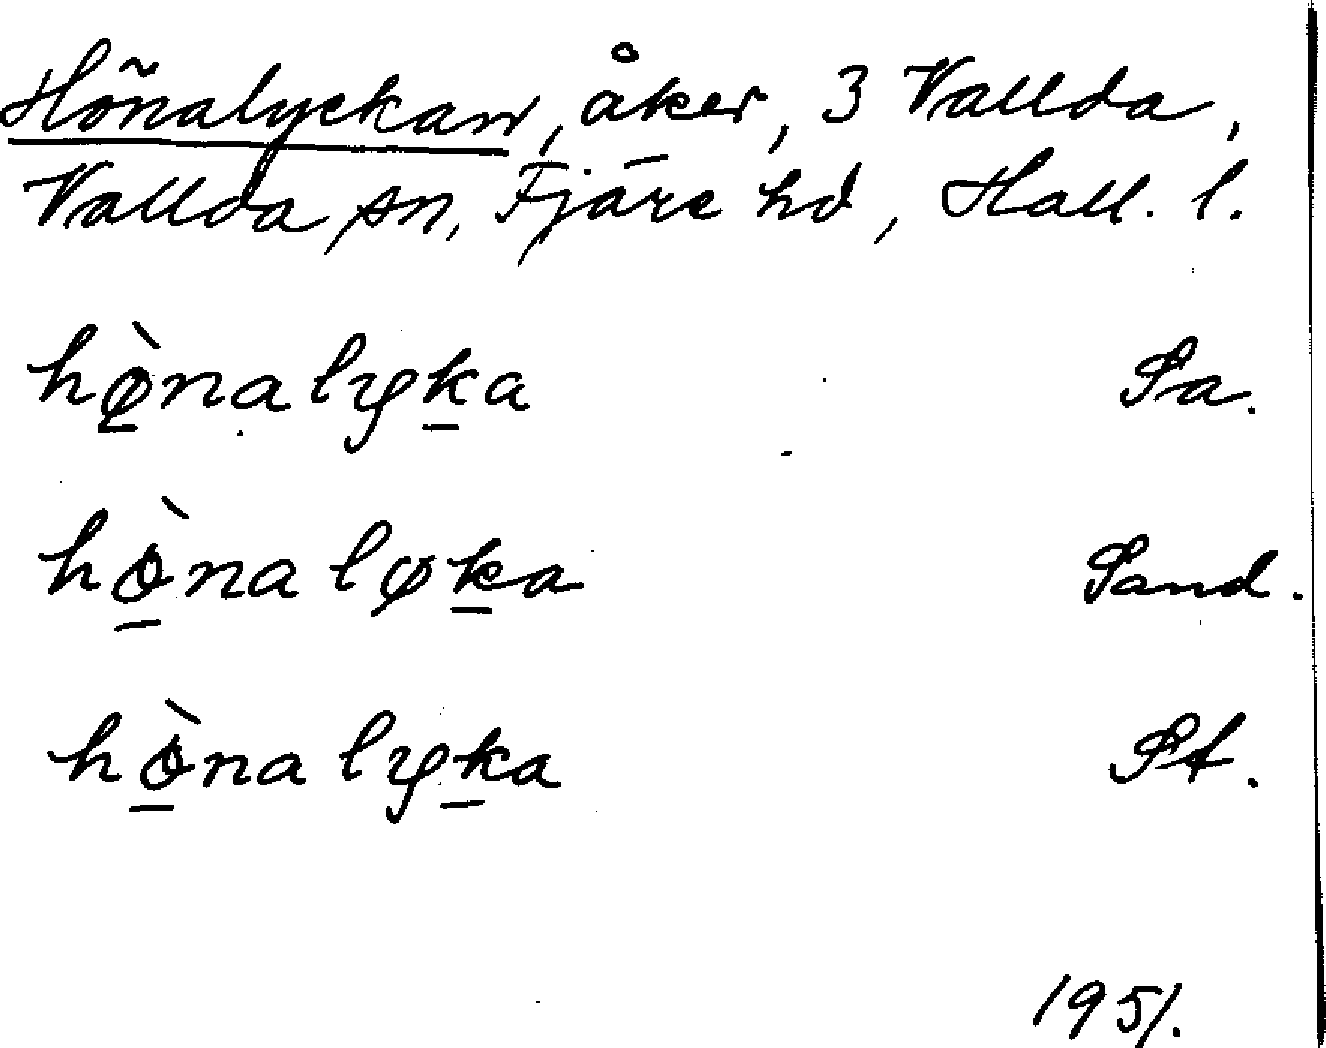 Hönalyckan, åker, 3 Vallda,
Vallda sn, Fjäre hd, Hall. l.
hø̠̀nalyk̠a Sa.
hò̠naløk̠a Sand.
hò̠nalyk̠a St.
1951.